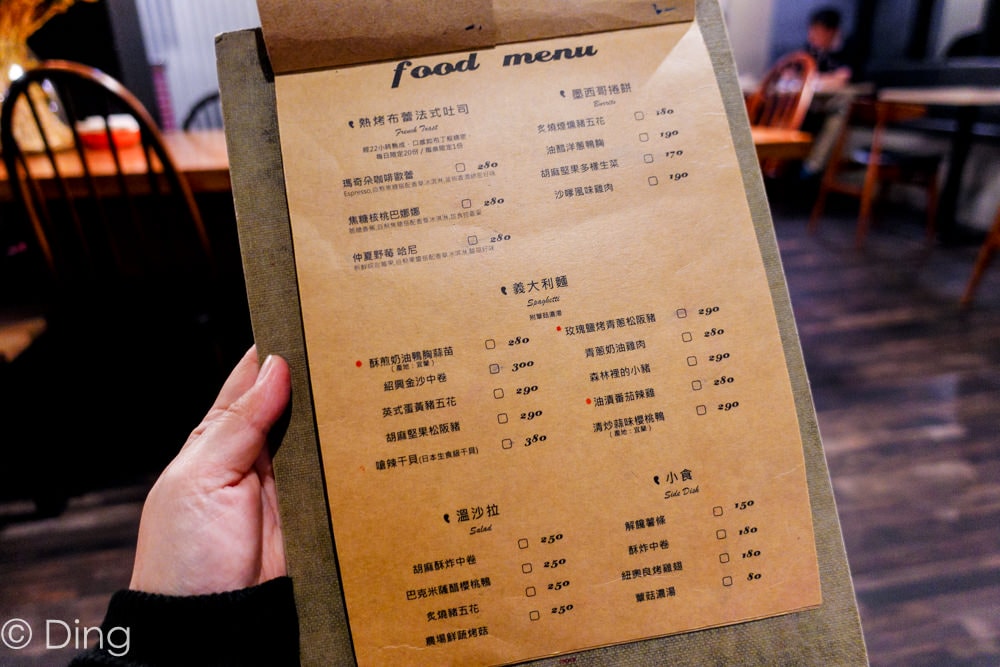 food menu
熱烤布蕾法式吐司
French Toast
經22小時熟成，口感如布丁般綿密
每日限定20份 / 每桌限定1份
瑪奇朵咖啡歐蕾 280
焦糖核桃巴娜娜 280
仲夏野莓 哈尼 280
墨西哥捲餅
Burrito
炙燒煙燻豬五花 180
油醋洋蔥鴨胸 190
胡麻堅果多樣生菜 170
沙嗲風味雞肉 190
義大利麵
Spaghetti
附蕈菇濃湯
酥煎奶油鴨胸蒜苗 280
(產地：宜蘭)
紹興金沙中卷 300
英式蛋黃豬五花 290
胡麻堅果松阪豬 290
嗆辣干貝(日本生食級干貝) 380
玫瑰鹽烤青蔥松阪豬 290
青蔥奶油雞肉 280
森林裡的小豬 290
油漬番茄辣雞 280
清炒蒜味櫻桃鴨 290
(產地：宜蘭)
溫沙拉
Salad
胡麻酥炸中卷 250
巴克米薩醋櫻桃鴨 250
炙燒豬五花 250
農場鮮蔬烤菇 250
小食
Side Dish
解饞薯條 150
酥炸中卷 180
紐奧良烤雞翅 180
蕈菇濃湯 80
© Ding